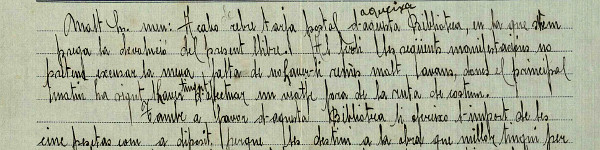 aqueixa
Molt Sr. meu: Acabo rebre tarja postal d'aquesta Biblioteca, en la que s'em
prega la devolució del present llibre. Al les següents manifestacions no
pretenc excusar la meva falta de no haver-li remès molt abans, doncs el principal
motiu ha sigut haver tingut d'efectuar un viatje fora de la ruta de costum.
També a favor d'aquesta Biblioteca li l'import de les
cinc pessetes com a diposit, perque les destini a la obra que millor tingui per